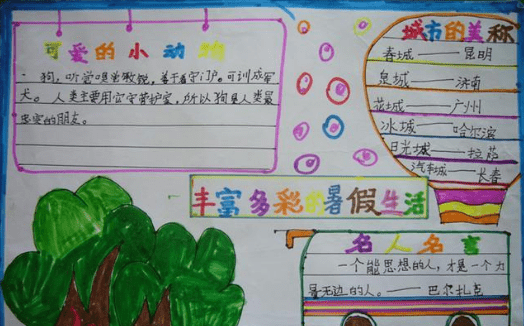 可爱的小动物
狗，听觉嗅觉敏锐，善于看守门户。可训成军
犬。人类主要用它守卫护家，所以狗是人类最
忠实的朋友。
城市的美称
春城——昆明
泉城——济南
花城——广州
冰城——哈尔滨
月光城——拉萨
汽车城——长春
丰富多彩的暑假生活
名人名言
一个能思想的人，才是一个力
量无边的人。——巴尔扎克